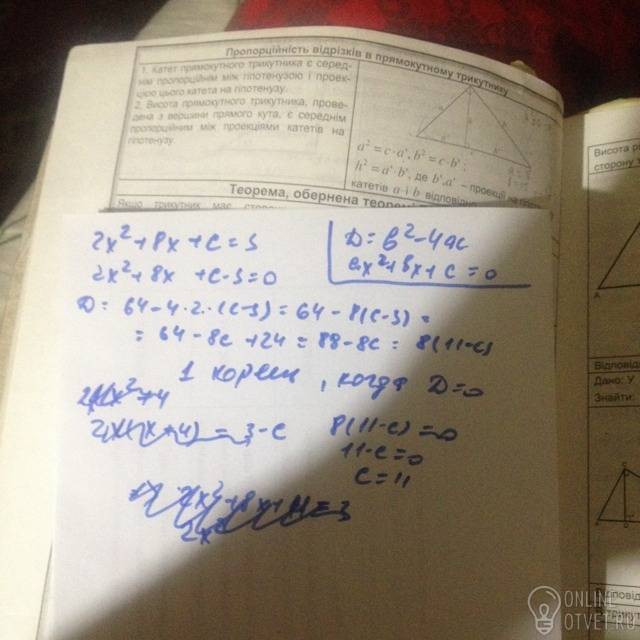 Пропорційність відрізків в прямокутному трикутнику
1. Катет прямокутного трикутника є серед-
нім пропорційним між гіпотенузою і проек-
цією цього катета на гіпотенузу.
2. Висота прямокутного трикутника, прове-
дена з вершини прямого кута, є середнім
пропорційним між проекціями катетів на
гіпотенузу.
a² = c·a', b² = c·b'
h² = a'·b', де b', a' – проекції на
катетів a і b відповідно
Теорема, обернена теорем
Якщо трикутник має сторон
2x²+8x+c=3
2x²+8x+c-3=0
D=b²-4ac
ax²+bx+c=0
D= 64-4·2·(c-3)= 64-8(c-3)=
= 64-8c+24=88-8c= 8(11-c)
1 корень, когда D=0
8(11-c)=0
11-c=0
c=11
Висота
сторону
A
Відповід
Дано: У
Знайти:
ONLINE
OTVET.RU